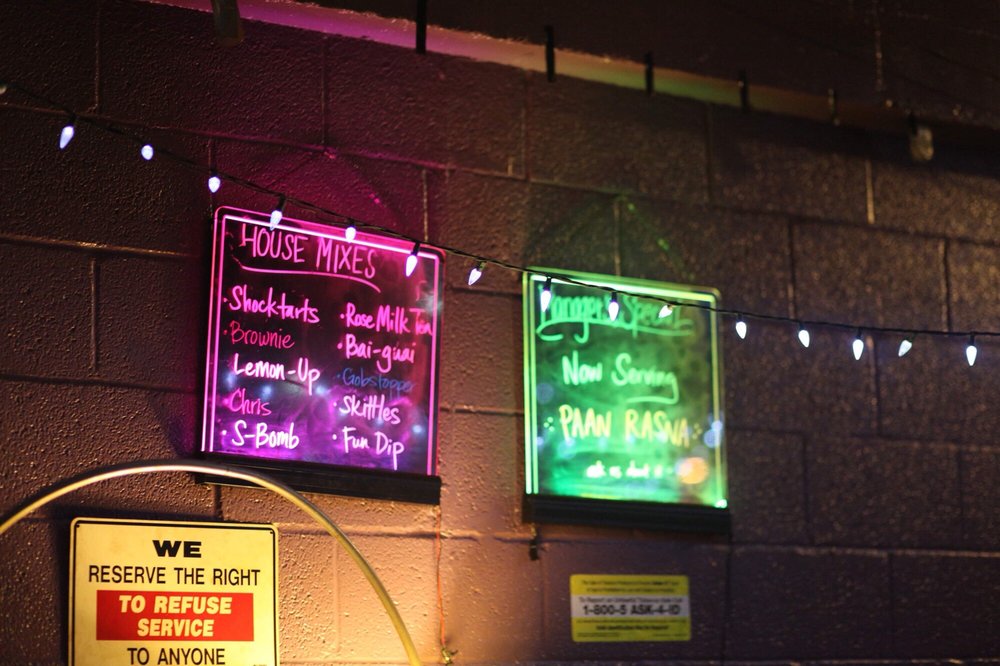 HOUSE MIXES
• Shocktarts
• Brownie
Lemon-Up
Chris
• S-Bomb
• Rose Milk Tea
• Bai-guai
• Gobstopper
• Skittles
• Fun Dip
Special
Now Serving
PAAN RASNA
WE
RESERVE THE RIGHT
TO REFUSE
SERVICE
TO ANYONE
1-800-5 ASK-4-ID